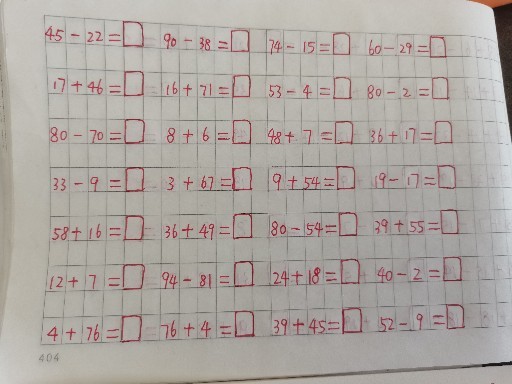 45 - 22 = □ 90 - 38 = □ 74 - 15 = □ 60 - 29 = □
17 + 46 = □ 16 + 71 = □ 53 - 4 = □ 80 - 2 = □
80 - 70 = □ 8 + 6 = □ 48 + 7 = □ 36 + 17 = □
33 - 9 = □ 3 + 67 = □ 9 + 54 = □ 19 - 17 = □
58 + 16 = □ 36 + 49 = □ 80 - 54 = □ 39 + 55 = □
12 + 7 = □ 94 - 81 = □ 24 + 18 = □ 40 - 2 = □
4 + 76 = □ 76 + 4 = □ 39 + 45 = □ 52 - 9 = □
404